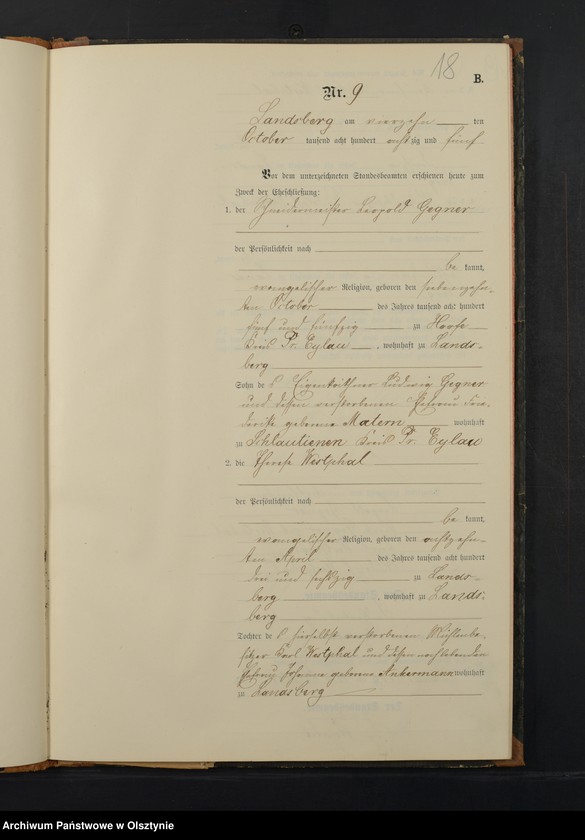 18
B.
Nr. 9
Landsberg am vierzehn ten
October tausend acht hundert achtzig und fünf
Vor dem unterzeichneten Standesbeamten erschienen heute zum
Zweck der Eheschließung:
1. der Schneidermeister Leopold Gegner
der Persönlichkeit nach
be kannt,
evangelischer Religion, geboren den siebenzehn-
ten October des Jahres tausend acht hundert
fünf und fünfzig zu Hoofe
Kreis Pr. Eylau, wohnhaft zu Lands-
berg
Sohn des Eigenkäthner Ludwig Gegner
und dessen verstorbenen Ehefrau
geborene Matern wohnhaft
zu Schlautienen Kreis Pr. Eylau
2. die Therese Westphal
der Persönlichkeit nach
be kannt,
evangelischer Religion, geboren den achtzehn-
ten April des Jahres tausend acht hundert
drei und sechszig zu Lands-
berg, wohnhaft zu Lands-
berg
Tochter des hierselbst verstorbenen Mühlenbe-
sitzer Karl Westphal und dessen nachlebenden
Ehefrau Johanna geborene Ankermann wohnhaft
zu Landsberg
Archiwum Państwowe w Olsztynie